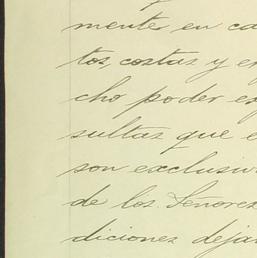 mente en ca
tos, costas y e
cho poder es
sultas que e
son exclusiv
de los Señores
diciones deja